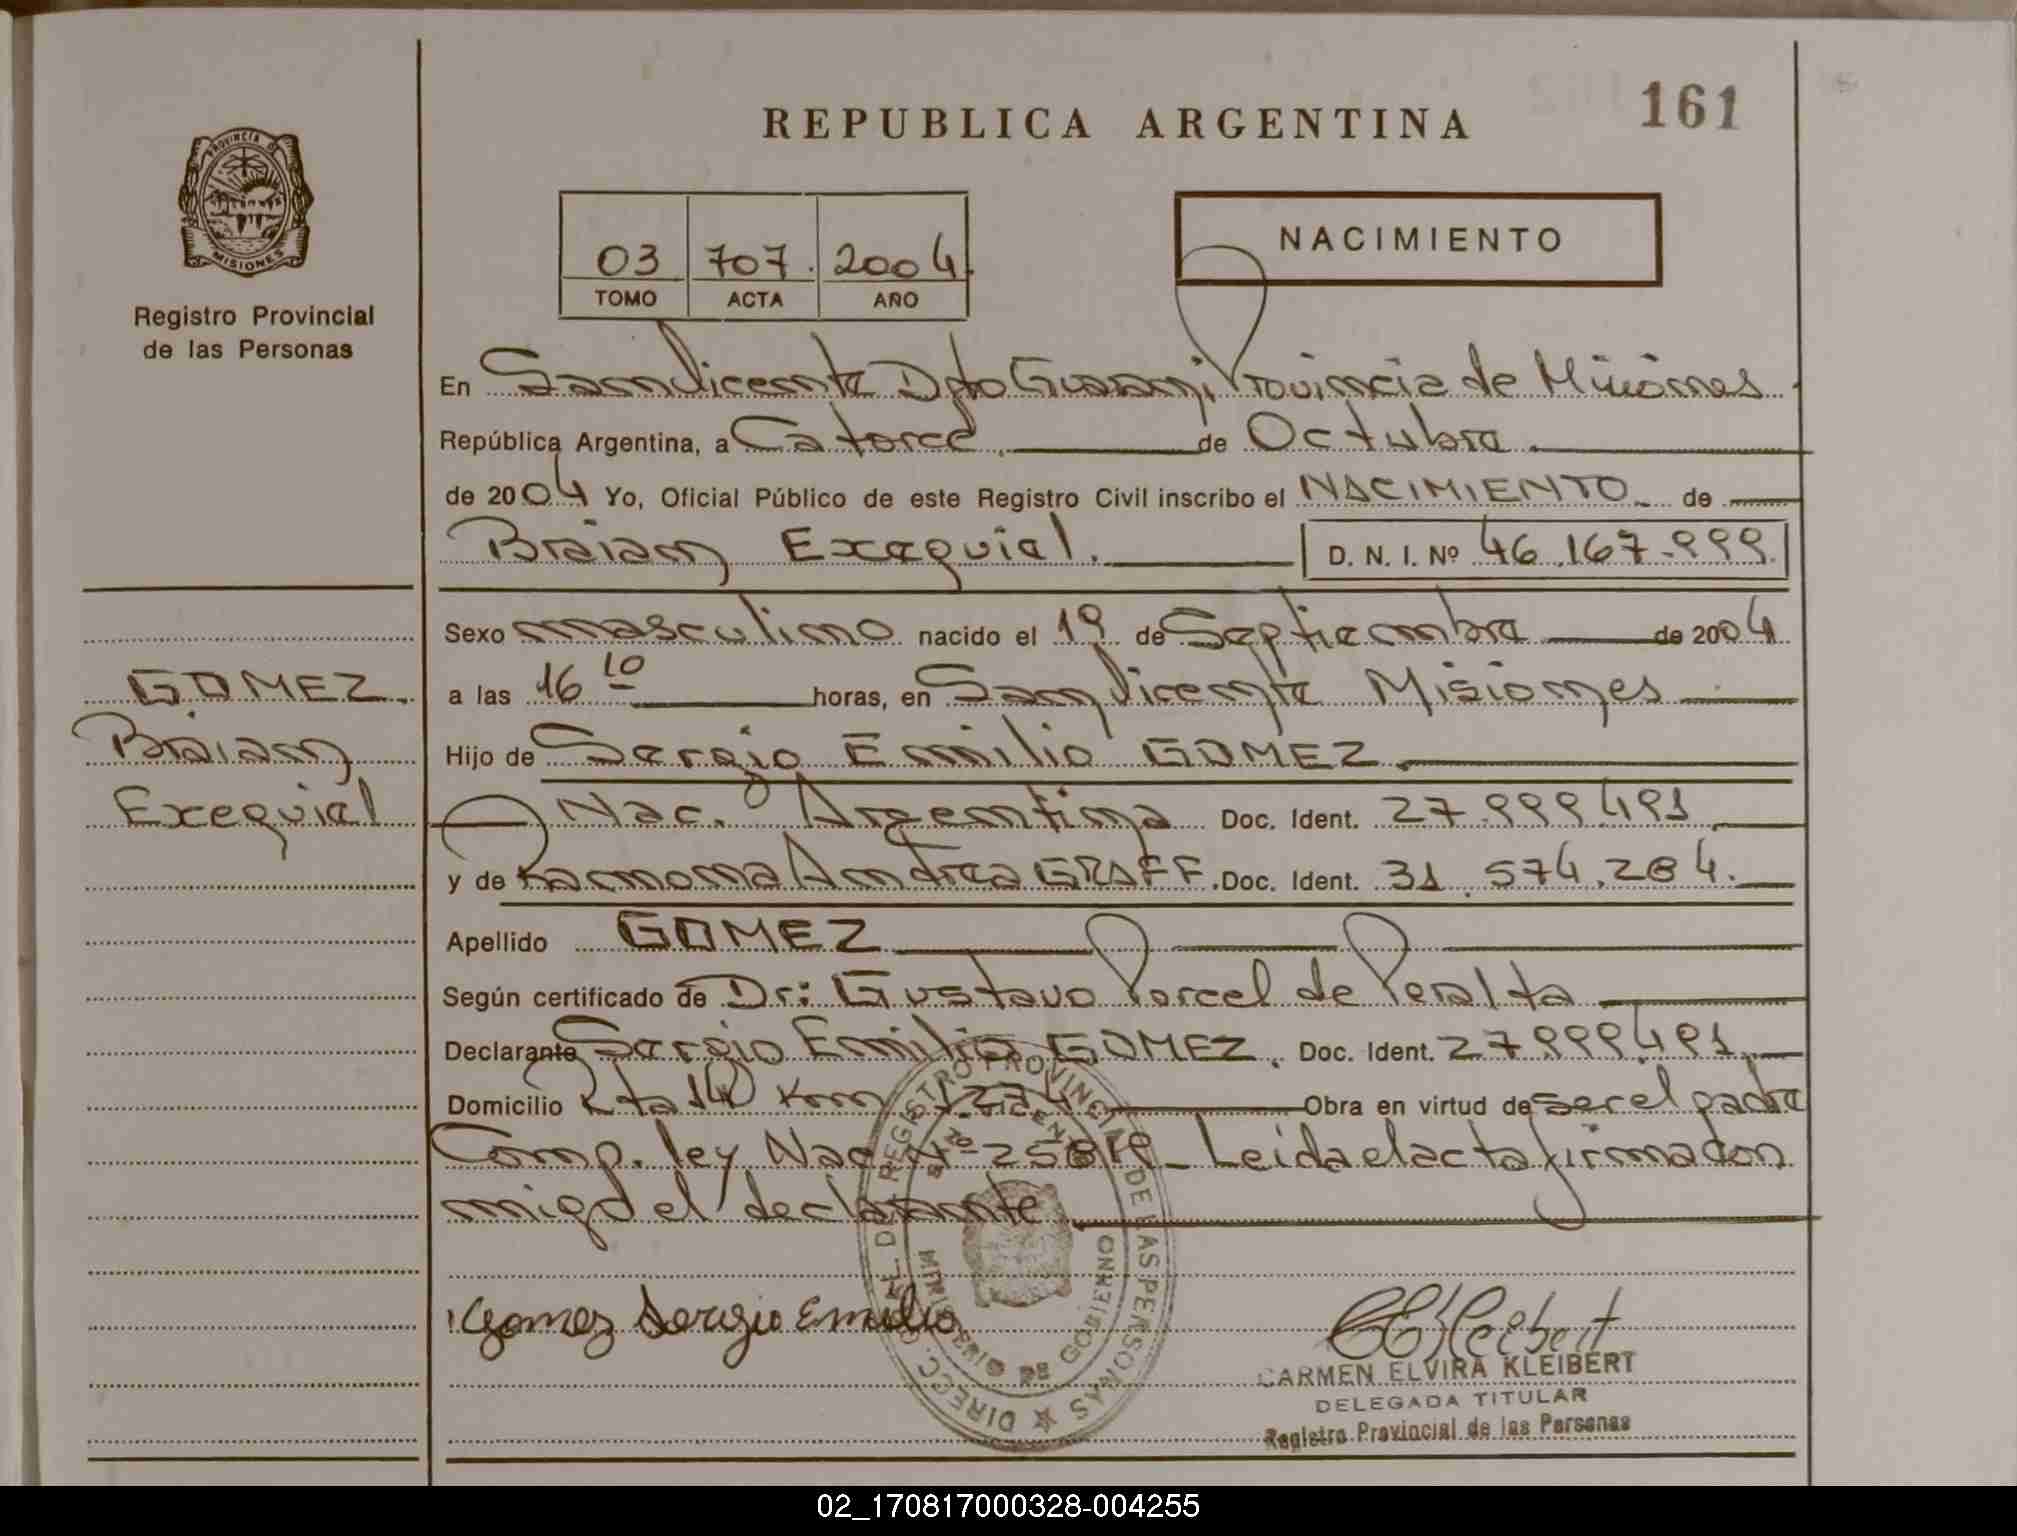 161
REPUBLICA ARGENTINA
PROVINCIA DE
MISIONES
Registro Provincial
de las Personas
NACIMIENTO
03 707 2004
TOMO ACTA AÑO
En San Vicente Dpto Guarani Provincia de Misiones
República Argentina, a Catorce de Octubre
de 2004 Yo, Oficial Público de este Registro Civil inscribo el NACIMIENTO de
Braian Exequiel. D. N. I. Nº 46.167.999
Sexo masculino nacido el 19 de Septiembre de 2004
a las 16 10 horas, en San Vicente Misiones
Hijo de Sergio Emilio GOMEZ
GOMEZ
Braian
Exequiel
Nac. Argentina Doc. Ident. 27.999.491
y de Ramona Andrea GRAFF. Doc. Ident. 31.574.284.
Apellido GOMEZ
Según certificado de Dr: Gustavo Porcel de Peralta
Declarante Sergio Emilio GOMEZ. Doc. Ident. 27.999.491
Domicilio Rta 14 Km 1274 Obra en virtud de ser el padre
Comp. ley Nac Nº 25819 - Leida el acta firma con
migo el declarante
DIRECC. GRAL. DEL REGISTRO PROVINCIAL DE LAS PERSONAS
MINISTERIO DE GOBIERNO
Gomez Sergio Emilio
CEKleibert
CARMEN ELVIRA KLEIBERT
DELEGADA TITULAR
Registro Provincial de las Personas
02_170817000328-004255